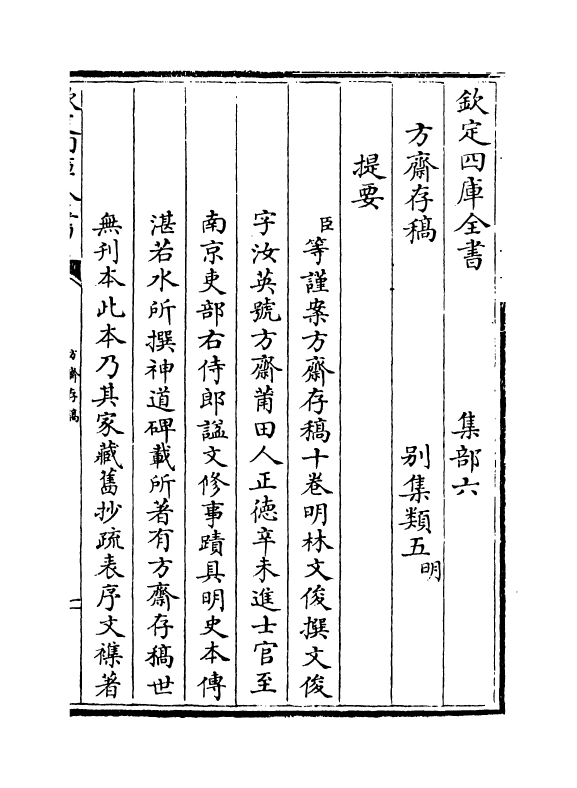 欽定四庫全書　集部六
方齋存稿　别集類五明
提要
臣等謹案方齋存稿十卷明林文俊撰文俊
字汝英號方齋莆田人正德辛未進士官至
南京吏部右侍郎諡文修事蹟具明史本傳
湛若水所撰神道碑載所著有方齋存稿世
無刊本此本乃其家藏舊抄疏表序文襍著
方齋存稿